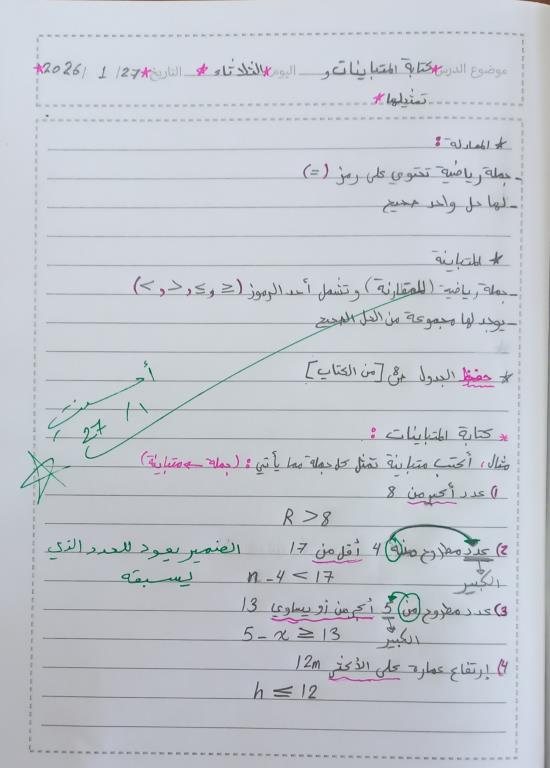 موضوع الدرس *كتابة المتباينات و اليوم *الثلاثاء* التاريخ *27/ 1 /2026*
تمثيلها*
* المعادلة :
- جملة رياضية تحتوي على رمز (=)
- لها حل واحد صحيح
* المتباينة
- جملة رياضية (للمقارنة) وتشمل أحد الرموز (≥ و ≤ و > و <)
- يوجد لها مجموعة من الحل الصحيح
* حفظ الجدول ص8 [من الكتاب]
أحسنت
27 /1
* كتابة المتباينات :
مثال، أكتب متباينة تمثل كل جملة مما يأتي : (جملة ← متباينة)
1) عدد أكبر من 8
R > 8
2) عدد مطروح منه 4 أقل من 17 الضمير يعود للعدد الذي
يسبقه
الكبير
n - 4 < 17
3) عدد مطروح من 5 أكبر من أو يساوي 13
الكبير
5 - x ≥ 13
4) إرتفاع عمارة على الأكثر 12m
h ≤ 12